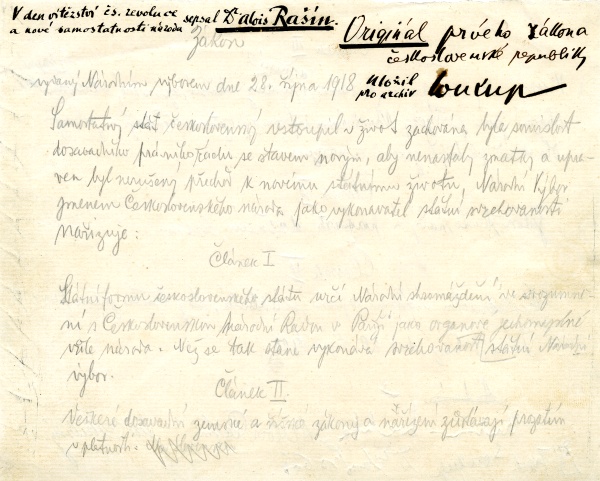 V den vítězství čs. revoluce
a nové samostatnosti národa sepsal Dr Alois Rašín.
Originál prvého zákona
československé republiky
uložil
pro archiv Soukup
Zákon
vydaný Národním výborem dne 28. října 1918
Samostatný stát československý vstoupil v život. zachována byla souvislost
dosavadního právního řádu se stavem novým, aby nenastaly zmatky a upra-
ven byl nerušený přechod k novému státnímu životu, Národní Výbor
jménem Československého národa jako vykonavatel státní svrchovanosti
nařizuje:
Článek I
Státní formu československého státu určí Národní shromáždění ve srozumě-
ní s Československou Národní Radou v Paříži jako orgánové jednomyslné
vůle národa. Než se tak stane vykonává svrchovanost státní Národní
výbor.
Článek II
Veškeré dosavadní zemské a říšské zákony a nařízení zůstávají prozatím
v platnosti.